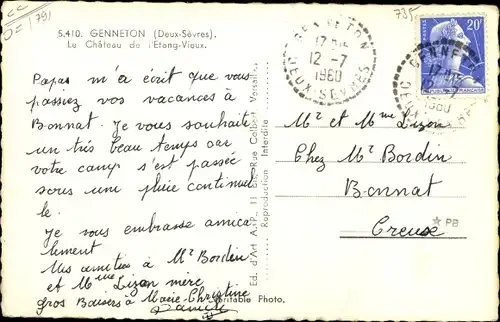 CC
735
5.410. GENNETON (Deux-Sèvres).
Le Château de l'Etang-Vieux.
Papas m'a écrit que vous
passiez vos vacances à
Bonnat. Je vous souhaite
un très beau temps car
votre camp s'est passé
sous une pluie continuel
le.
Je vous embrasse amica
lement
Mes amitiés à Mr Bordin
et Mme Lizon mère
gros Baisers à Marie-Christine
Ed. d'Art A.P., 11 Rue Colbert Versailles
Reproduction Interdite
Véritable Photo.
GENNETON
12-7
1960
DEUX-SEVRES
20F
GENNETON
1960
Mr et Mme Lizon
Chez Mr Bordin
Bonnat
Creuse
PB